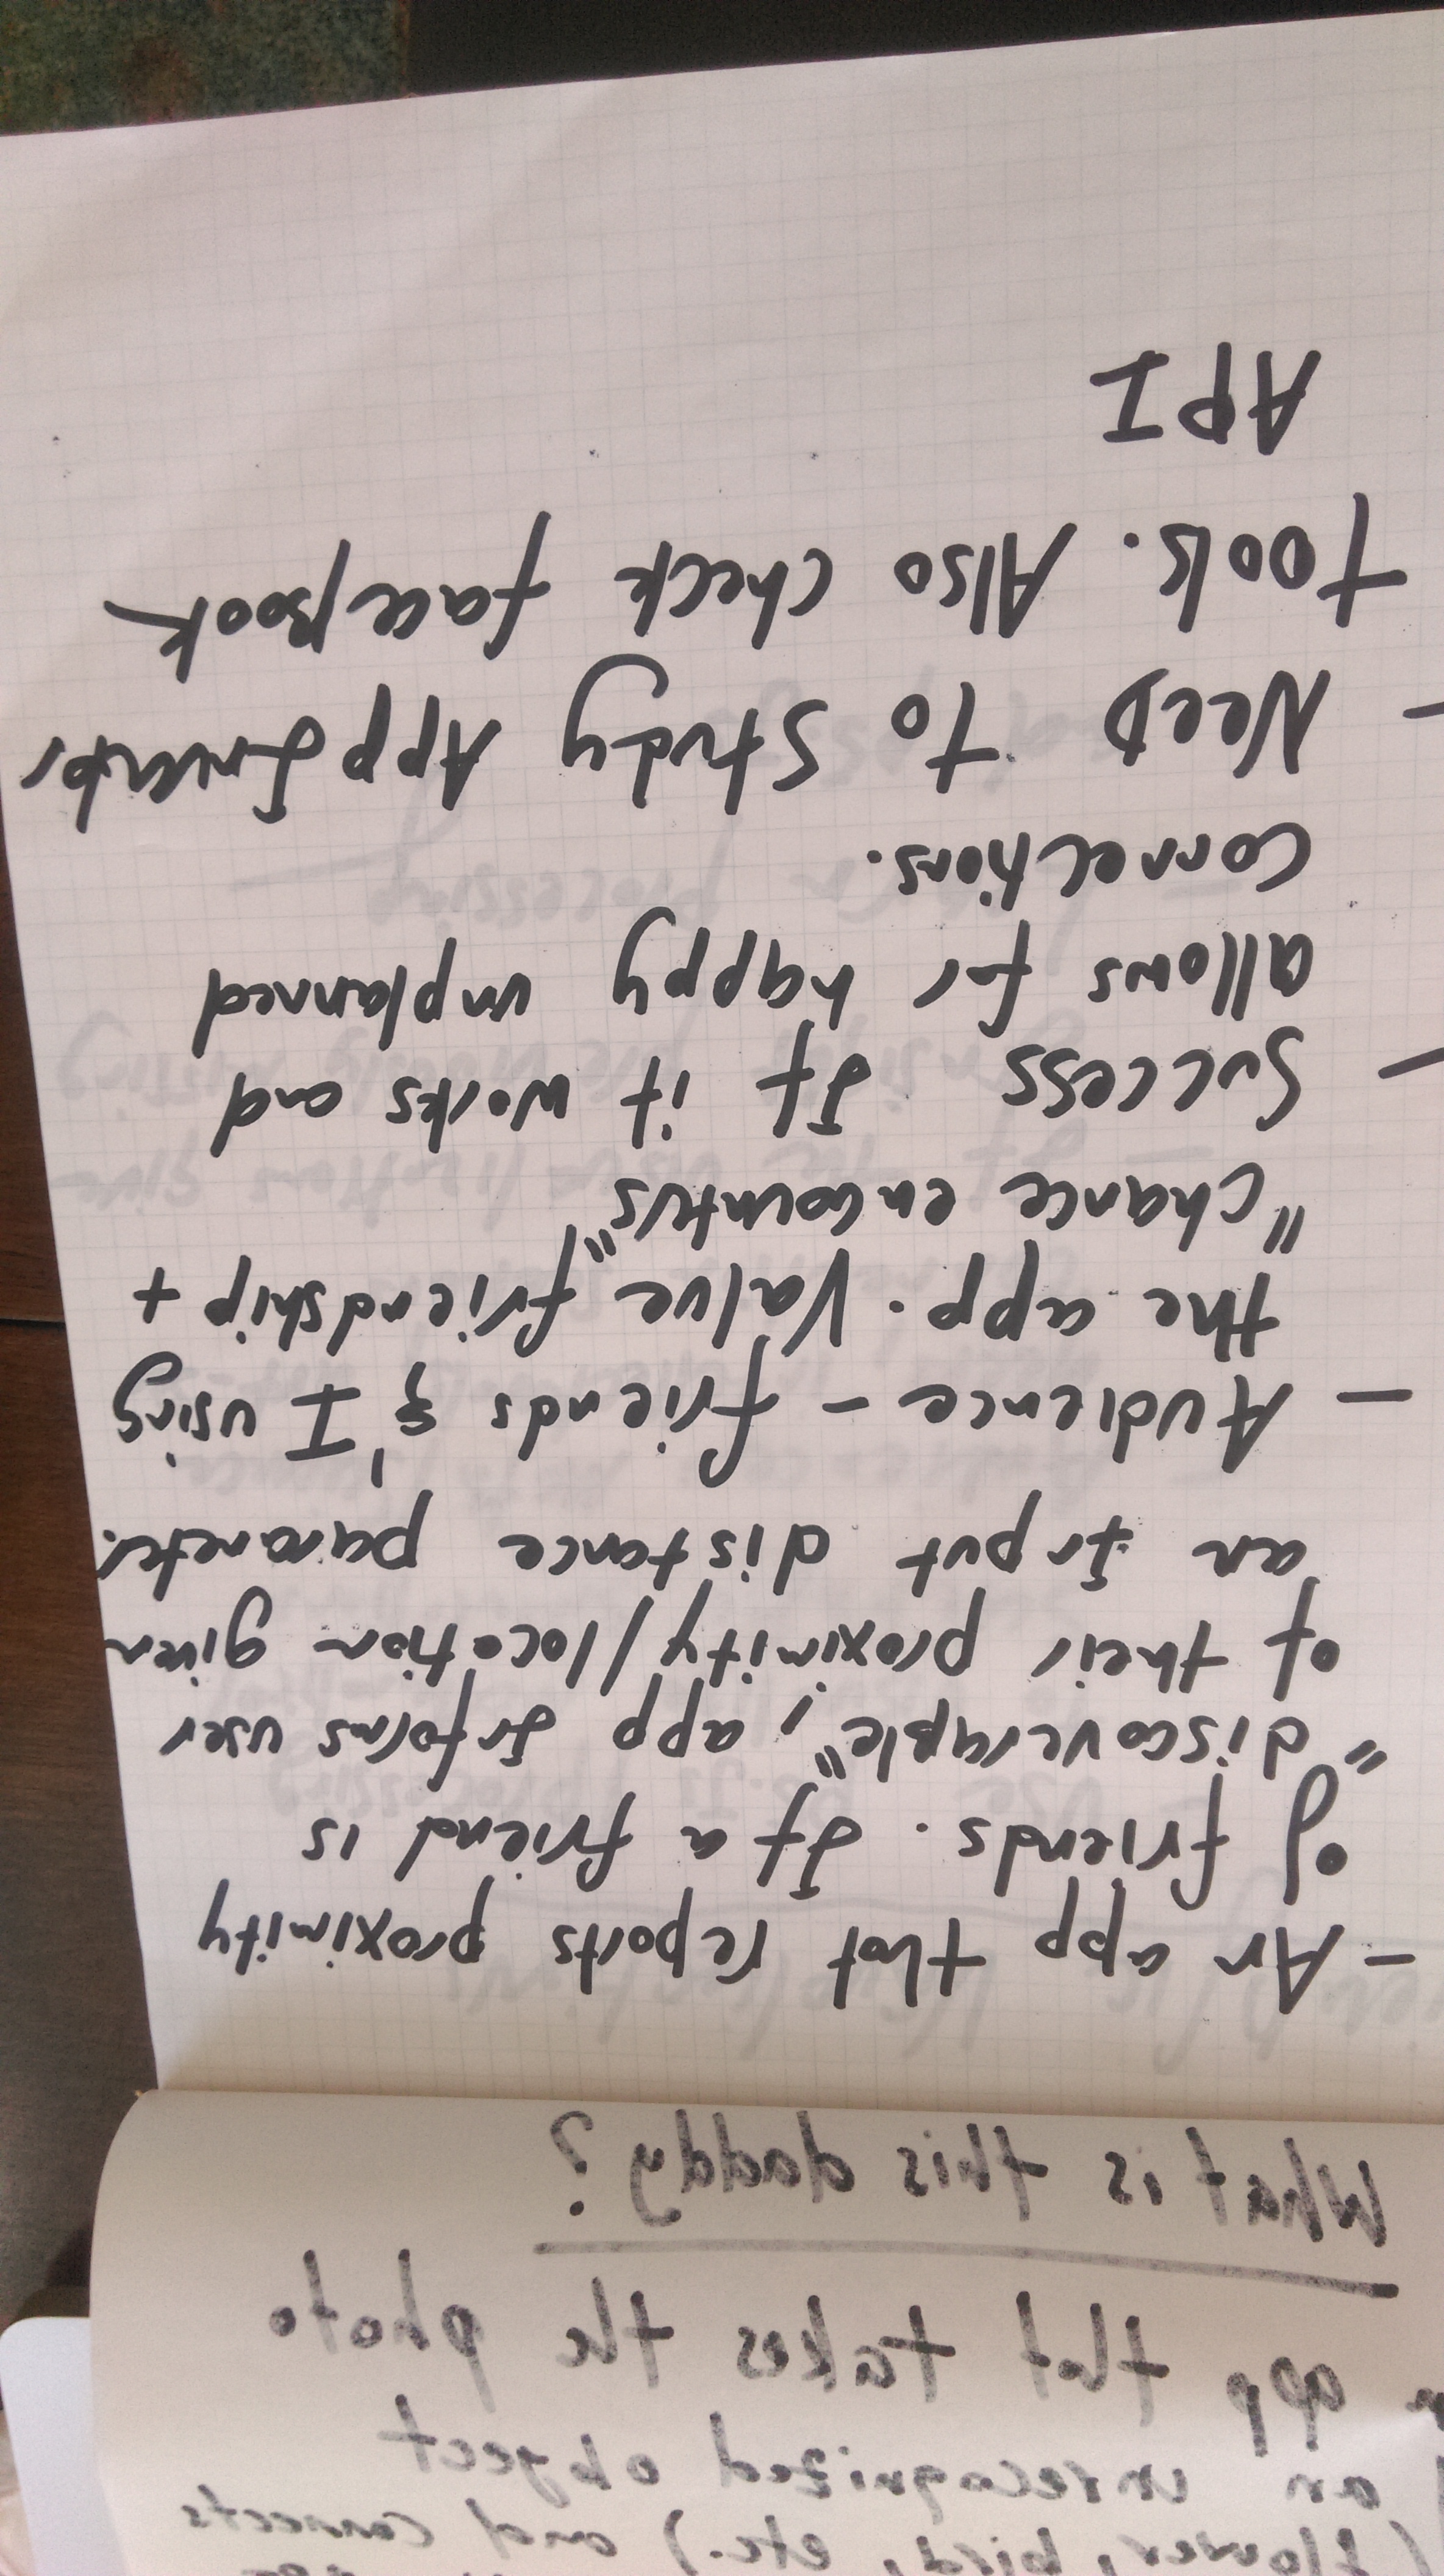 - An app that reports proximity
of friends. If a friend is
"discoverable", app Informs user
of their proximity/location given
an Input distance parameter.
- Audience - friends & I using
the app. Value "friendship +
"chance encounters"
- Success If it works and
allows for happy unplanned
connections.
- NeeD to Study App Inventor
tools. Also check faceBook
API
What is this daddy?
app that takes the photo
an unrecognized object
(flower, bird, etc.) and connects